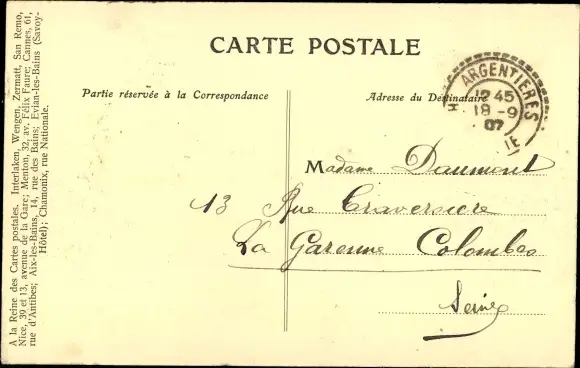 CARTE POSTALE
Partie réservée à la Correspondance
Adresse du Destinataire
ARGENTIÈRES
12 45
18 -9
07
IE
Madame Daumont
13 Rue Traversière
La Garenne Colombes
Seine
A la Reine des Cartes postales. Interlaken, Wengen, Zermatt, San Remo,
Nice, 39 et 13, avenue de la Gare; Menton, 32, av. Félix Faure; Cannes, 61,
rue d'Antibes; Aix-les-Bains, 14, rue des Bains; Evian-les-Bains (Savoy-
Hôtel); Chamonix, rue Nationale.